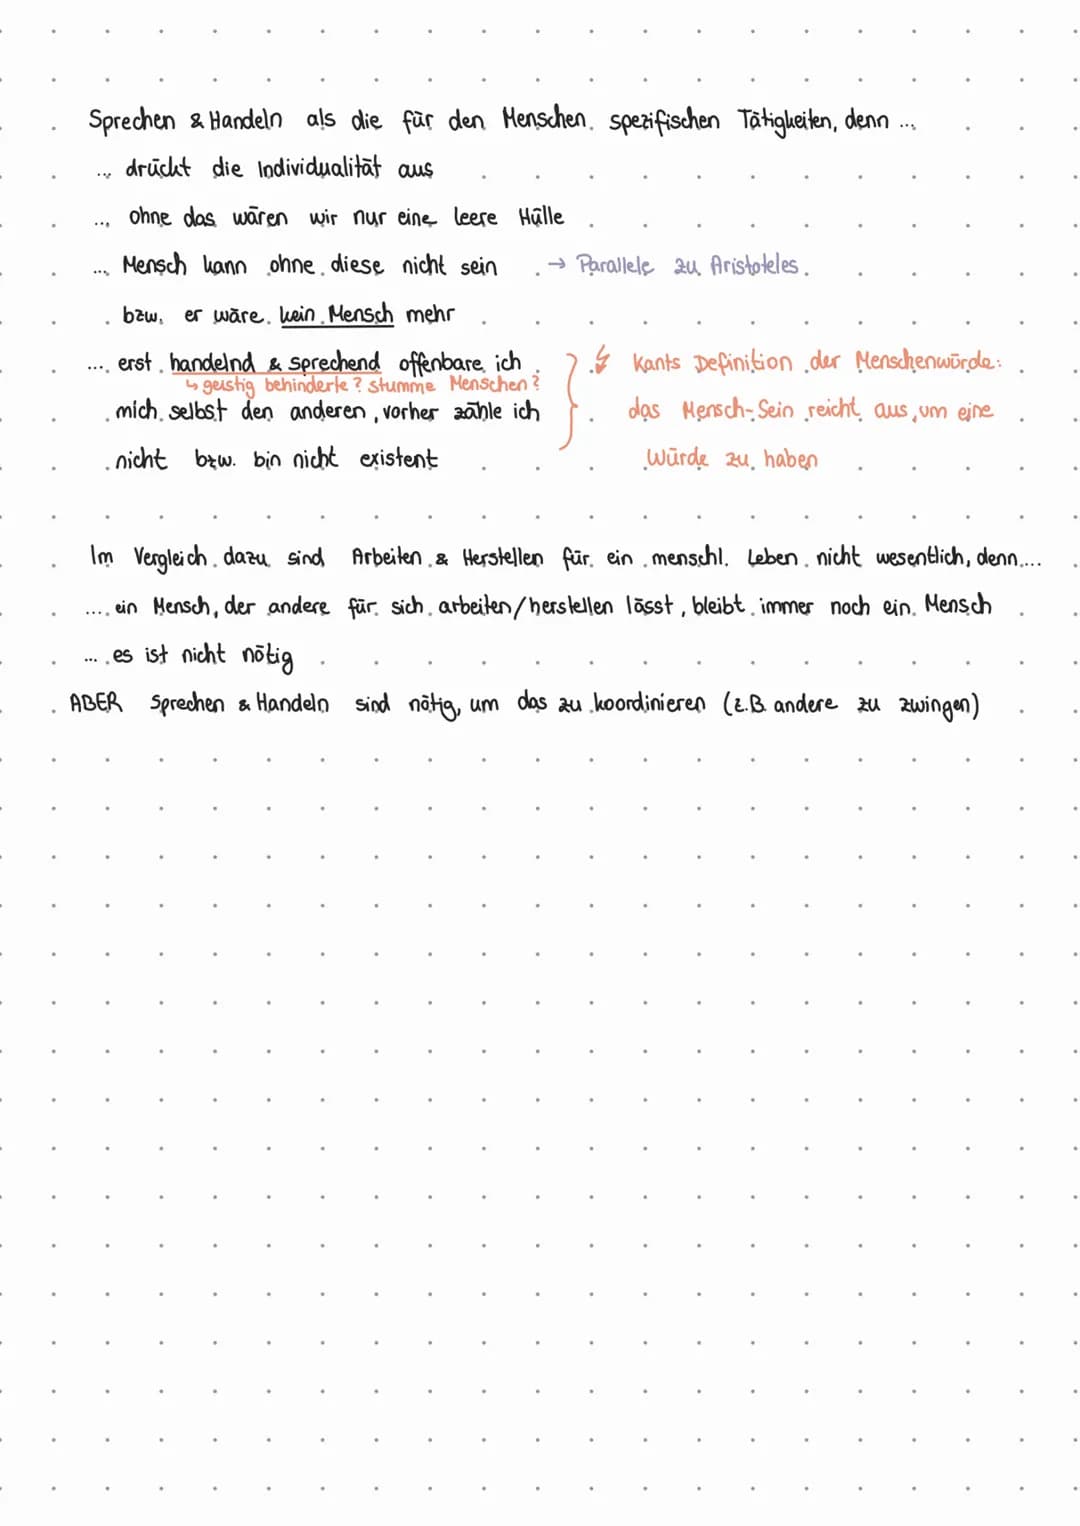 Sprechen & Handeln als die für den Menschen spezifischen Tätigkeiten, denn ...
... drückt die Individualität aus
... ohne das wären wir nur eine leere Hülle
... Mensch kann ohne diese nicht sein → Parallele zu Aristoteles
bzw. er wäre kein Mensch mehr
... erst handelnd & sprechend offenbare ich
↳ geistig behinderte? stumme Menschen?
mich selbst den anderen, vorher zähle ich
nicht bzw. bin nicht existent
Kants Definition der Menschenwürde:
das Mensch-Sein reicht aus, um eine
Würde zu haben
Im Vergleich dazu sind Arbeiten & Herstellen für ein menschl. Leben nicht wesentlich, denn...
... ein Mensch, der andere für sich arbeiten/herstellen lässt, bleibt immer noch ein Mensch
... es ist nicht nötig
ABER Sprechen & Handeln sind nötig, um das zu koordinieren (z.B. andere zu zwingen)